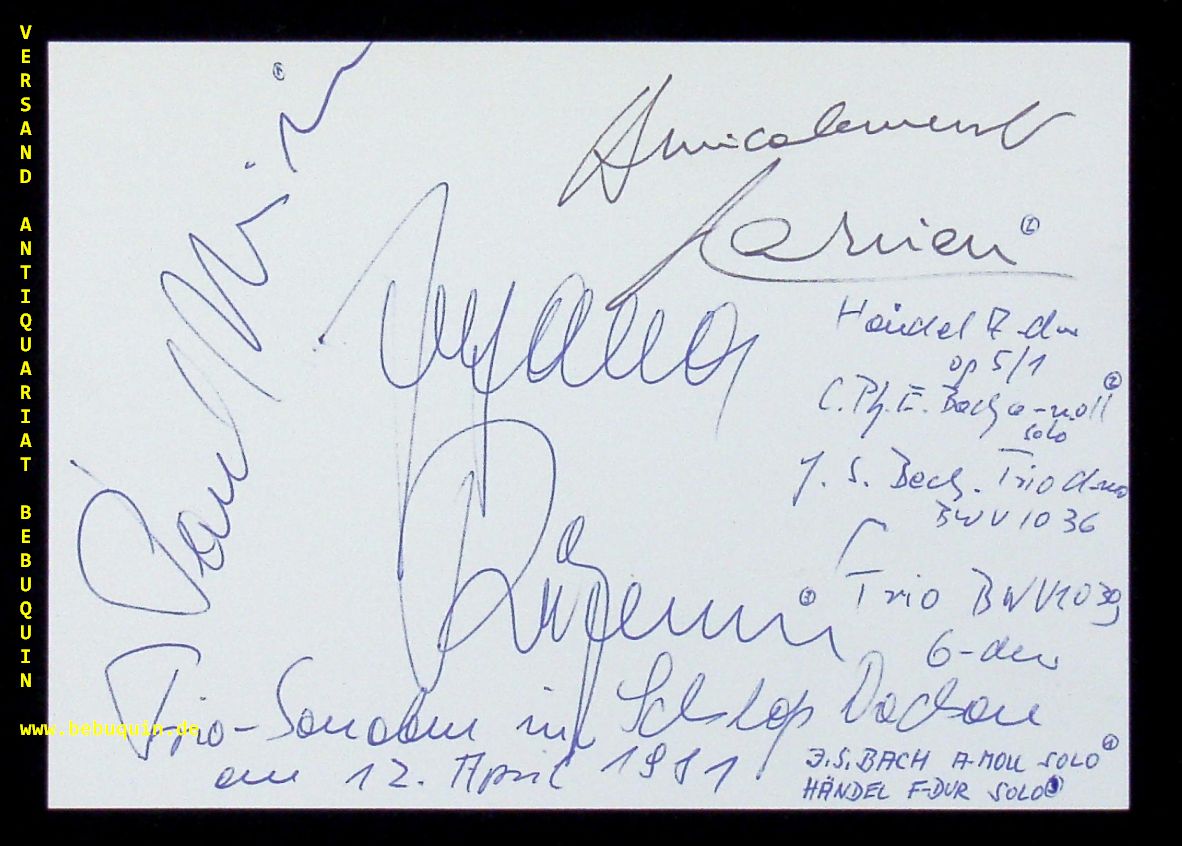 VERSAND ANTIQUARIAT BEBUQUIN
www.bebuquin.de
Amicalement
Larrieu ②
Paul Meisen ①
Händel
op 5/1
C.Ph.E. Bach a-moll ②
solo
J. S. Bach. Trio d-moll
BWV 1036
Trio BWV 1039
G-dur
③
Trio-Sonaten im Schloß Dachau
am 12. April 1981
J.S. BACH A-MOLL SOLO ①
HÄNDEL F-DUR SOLO ③